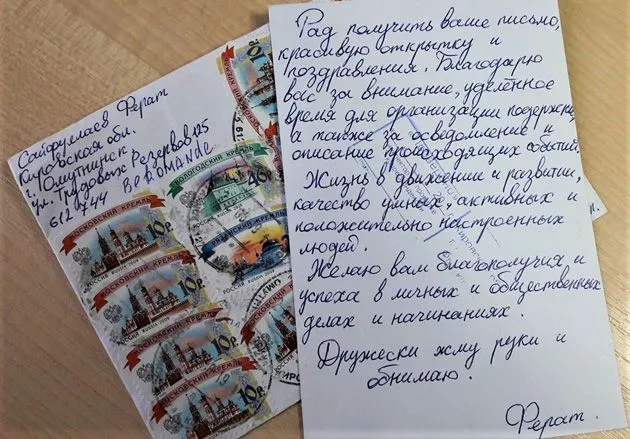 Сайфуллаев Ферат
Кировская обл.
г. Омутнинск
ул. Трудовых Резервов 125
612744
МОСКОВСКИЙ КРЕМЛЬ
10р
РОССИЯ RUSSIA 2009
ВОЛОГОДСКИЙ КРЕМЛЬ
РЯЗАНСКИЙ КРЕМЛЬ
РОССИЯ RUSSIA
МОСКОВСКИЙ КРЕМЛЬ
10р
МОСКОВСКИЙ КРЕМЛЬ
10р
МОСКОВСКИЙ КРЕМЛЬ
10р
Рад получить ваше письмо,
красивую открытку и
поздравления. Благодарю
вас за внимание, уделённое
время для организации подержки,
а также за осведомление и
описание происходящих событий.
Жизнь в движении и развитии,
качество умных, активных и
положительно настроенных
людей.
Желаю вам благополучия и
успеха в личных и общественных
делах и начинаниях.
Дружески жму руки и
обнимаю.
Ферат.